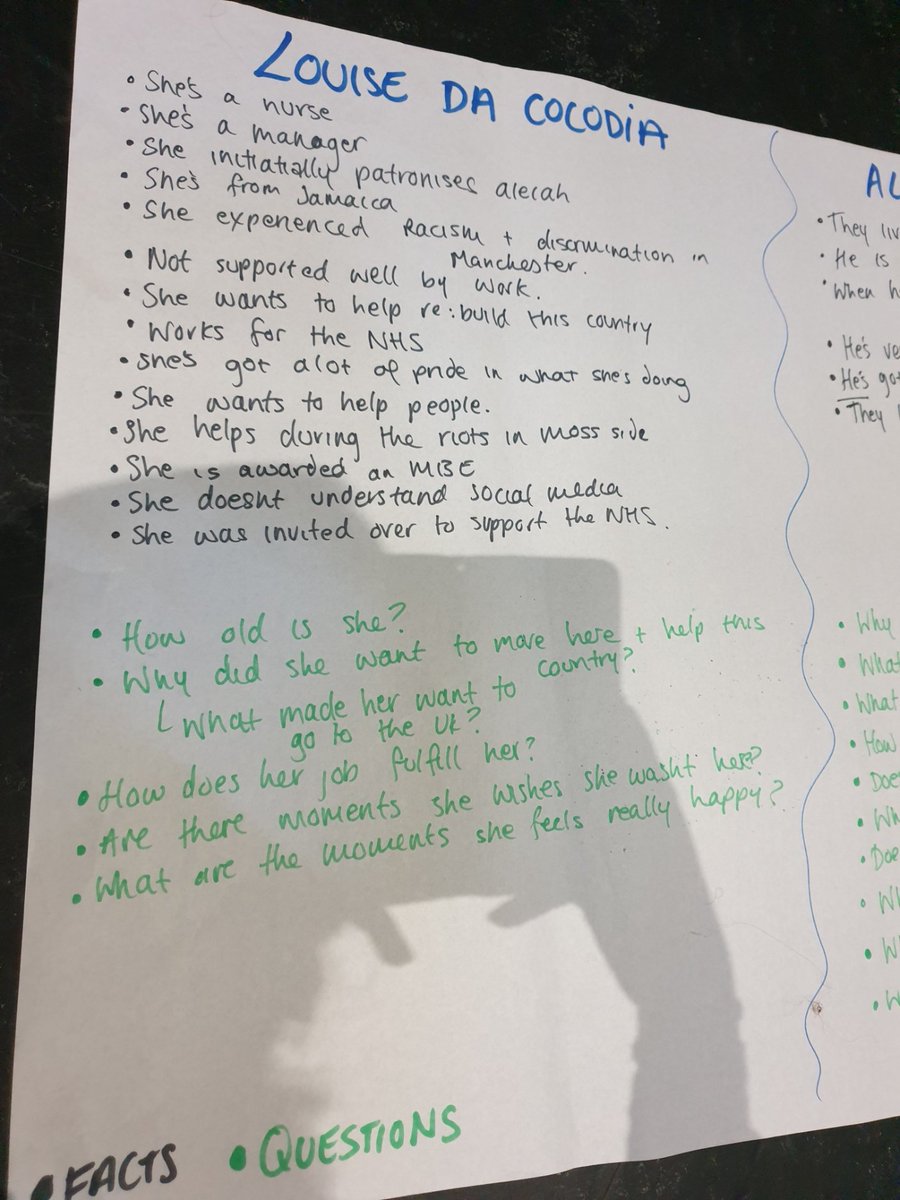 LOUISE DA COCODIA
• She's a nurse
• She's a manager
• She initiatially patronises alecah
• She's from Jamaica
• She experienced Racism + discrimination in
Manchester.
• Not supported well by work.
• She wants to help re:build this country
• Works for the NHS
• She's got alot of pride in what she's doing
• She wants to help people.
• She helps during the riots in moss side
• She is awarded an MBE
• She doesnt understand social media
• She was invited over to support the NHS.
• How old is she?
• Why did she want to move here + help this
country?
L What made her want to
go to the UK?
• How does her job fulfill her?
• Are there moments she wishes she wasn't here?
• What are the moments she feels really happy?
• FACTS • QUESTIONS
AL
• They liv
• He is
• When h
• He's ve
• He's go
• They
• Why
• What
• What
• How
• Doe
• Wh
• Doe
• Wh
• W
• W